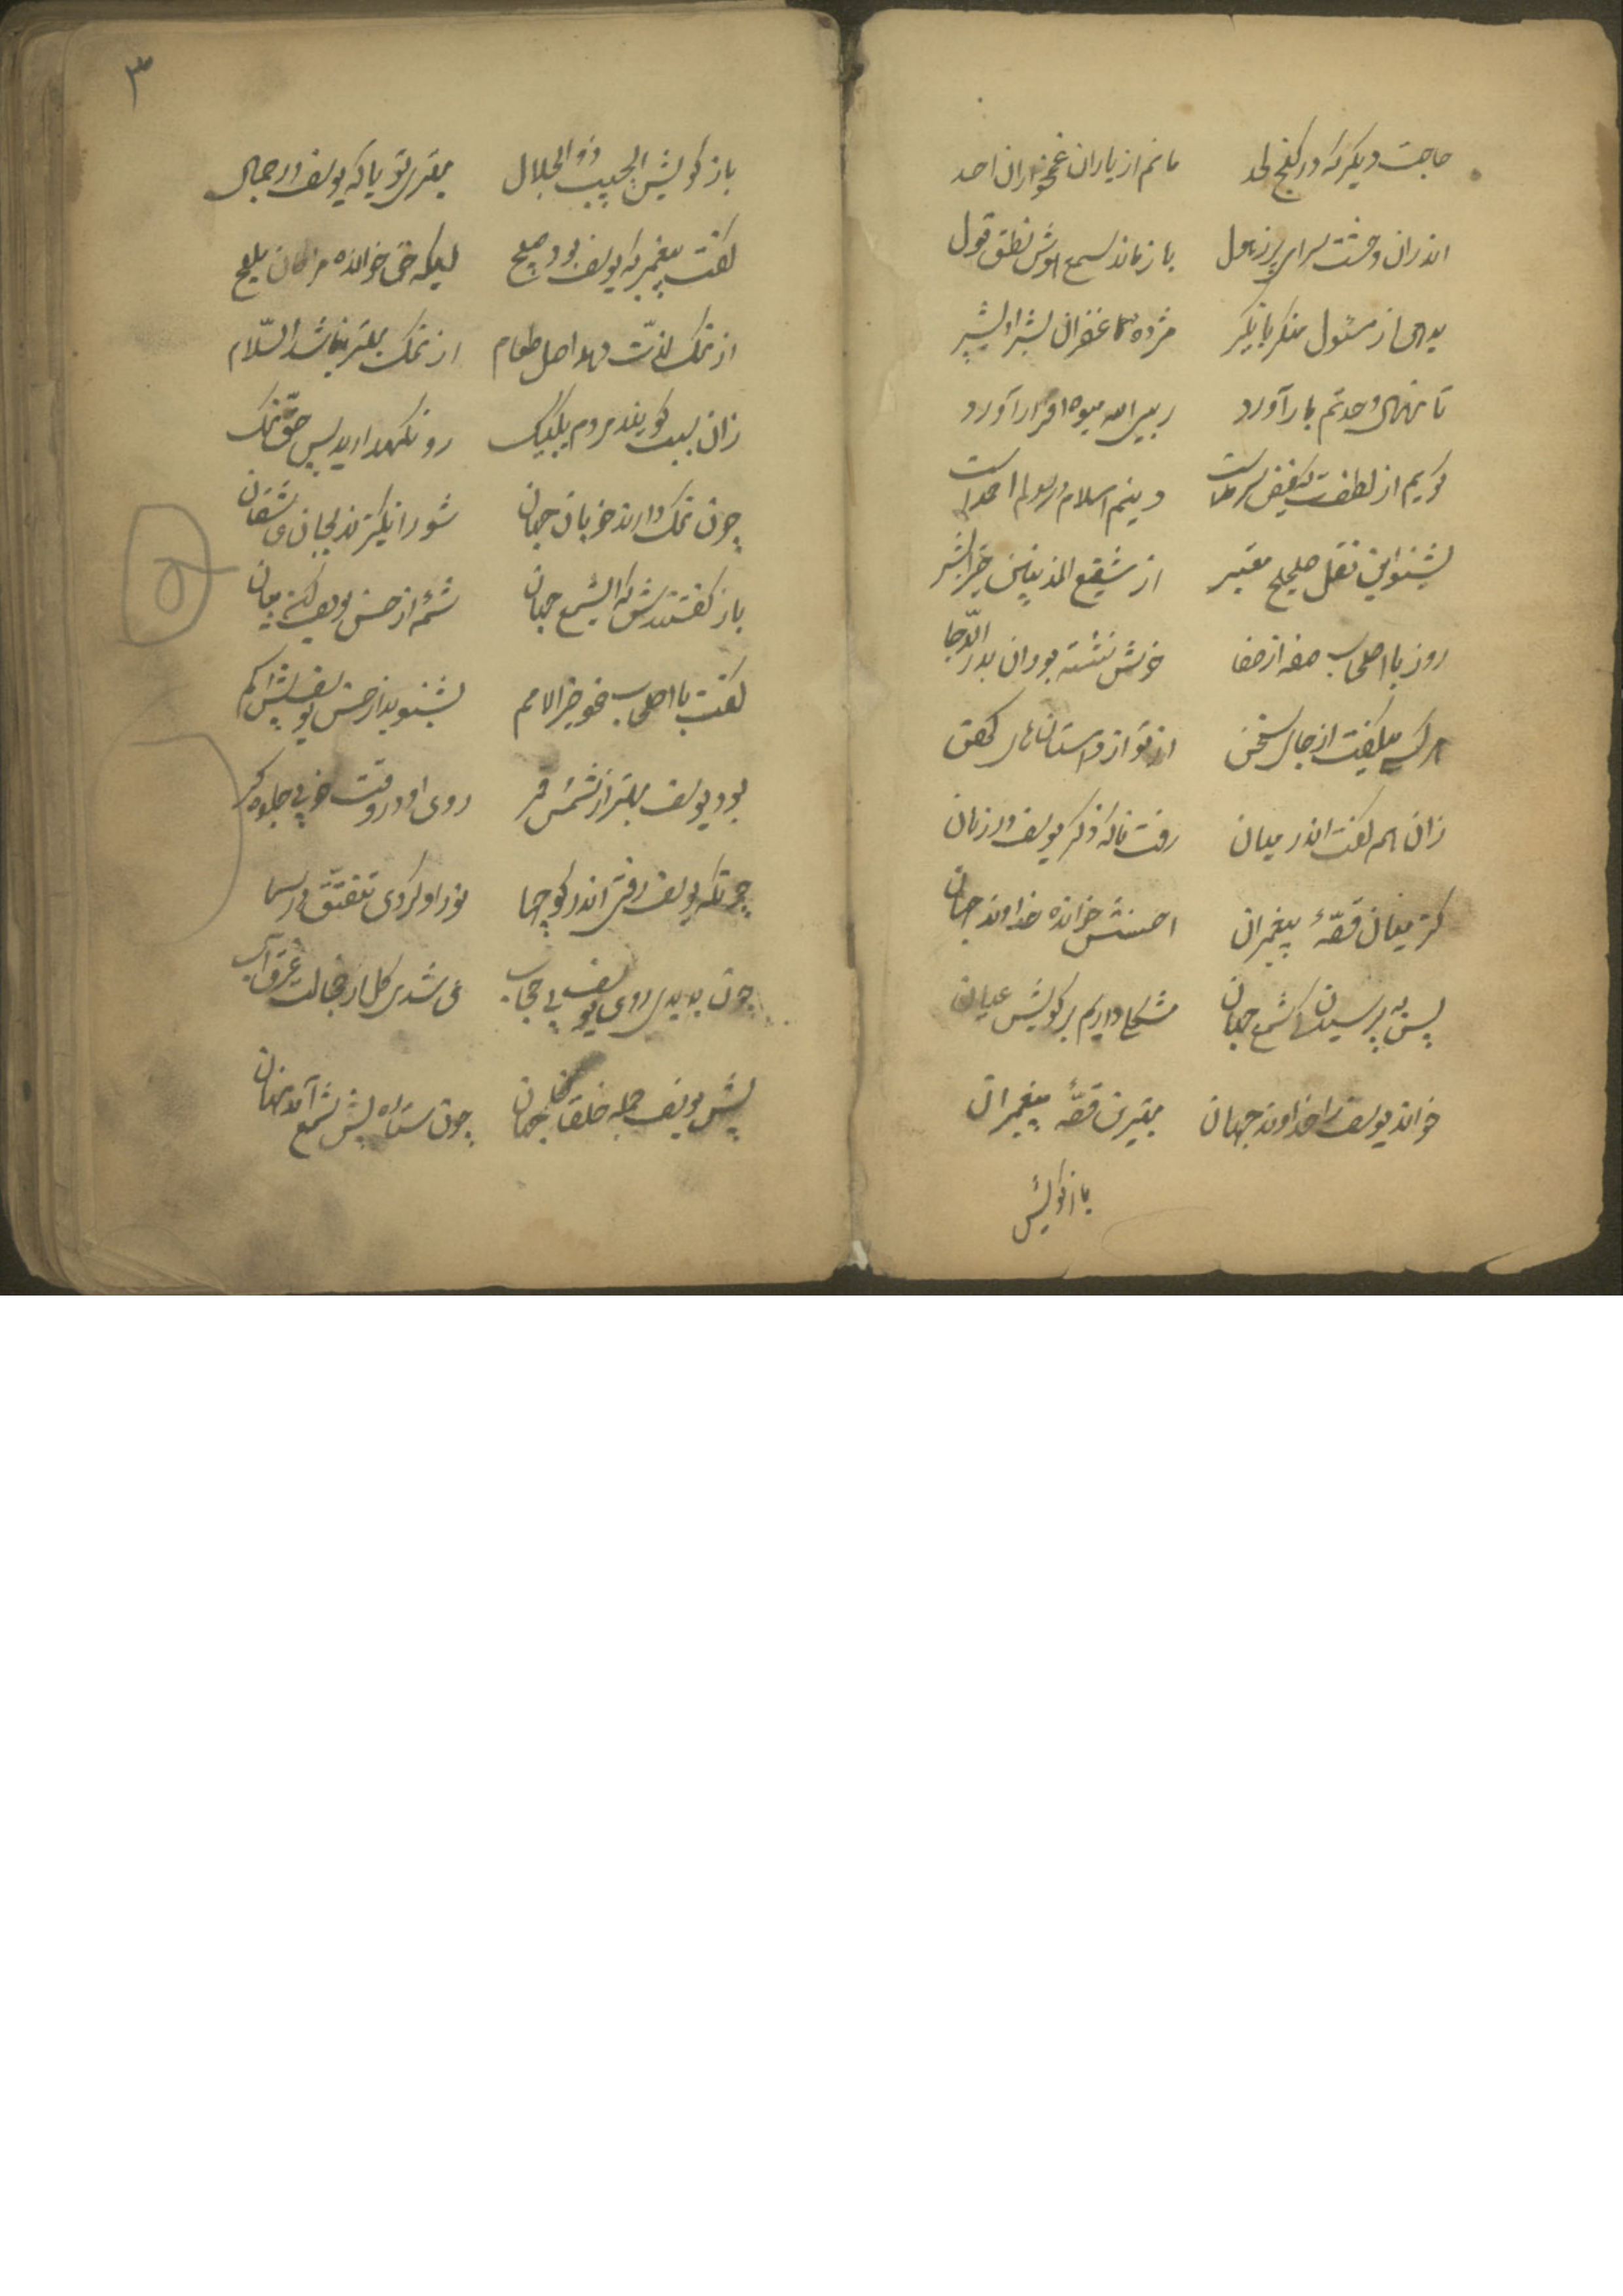 حاجت دیگر که در کنج لحد مانم از یاران غمخواران احد
اندران وحشت سرای پر ز هول باز ماند سمع هوش نطق قول
از مسئول منکر با نکیر مژده غفران بشیرا بشیر
تا نهال وحدتم بار آورد میوه اقرار آورد
گویم از لطفت دینم اسلام رسولم احمد است
بشنو این نقل صحیح معتبر از شفیع المذنبین خیر البشر
روز با اصحاب صفه از صفا خوش نشسته بود آن بدر الدجا
هر کسی میگفت از جای سخن از نو از داستان های کهن
زان همه گفت اندر میان رفت ناگه ذکر یوسف در زبان
کز میان قصهٔ پیغمبران احسنش خوانده خداوند جهان
پس به پرسیدن شمع جهان مشکلی داریم بر گویش عیان
خواند یوسف را خداوند جهان بهترین قصهٔ پیغمبران
باز گویش
۳
باز گویش ای حبیب ذو الجلال بهتری تو یا که یوسف در جمال
گفت پیغمبر که یوسف بود صبیح لیکه حق خوانده مرا کان ملیح
از نمک لذت دهد اصل طعام از نمک بهتر نباشد والسلام
زان سبب گویند مردم یک بیک رو نگهدارید پس حق نمک
چون نمک دارند خوبان جهان شور انگیزند بجان عاشقان
باز گفتندش که ای شمع جهان شمهٔ از حسن یوسف کن بیان
گفت با اصحاب خود خیر الامم بشنوید از حسن یوسف بیش و کم
بود یوسف بهتر از شمس قمر روی او در وقت خوبی جلوه گر
چونکه یوسف رفتی اندر کوچها نور او کردی تتق در سما
چون بدیدی روی یوسف بی حجاب می شدی گل از خجالت غرق آب
پیش یوسف جمله خلقان جهان چون ستاره پیش شمع آمد نهان